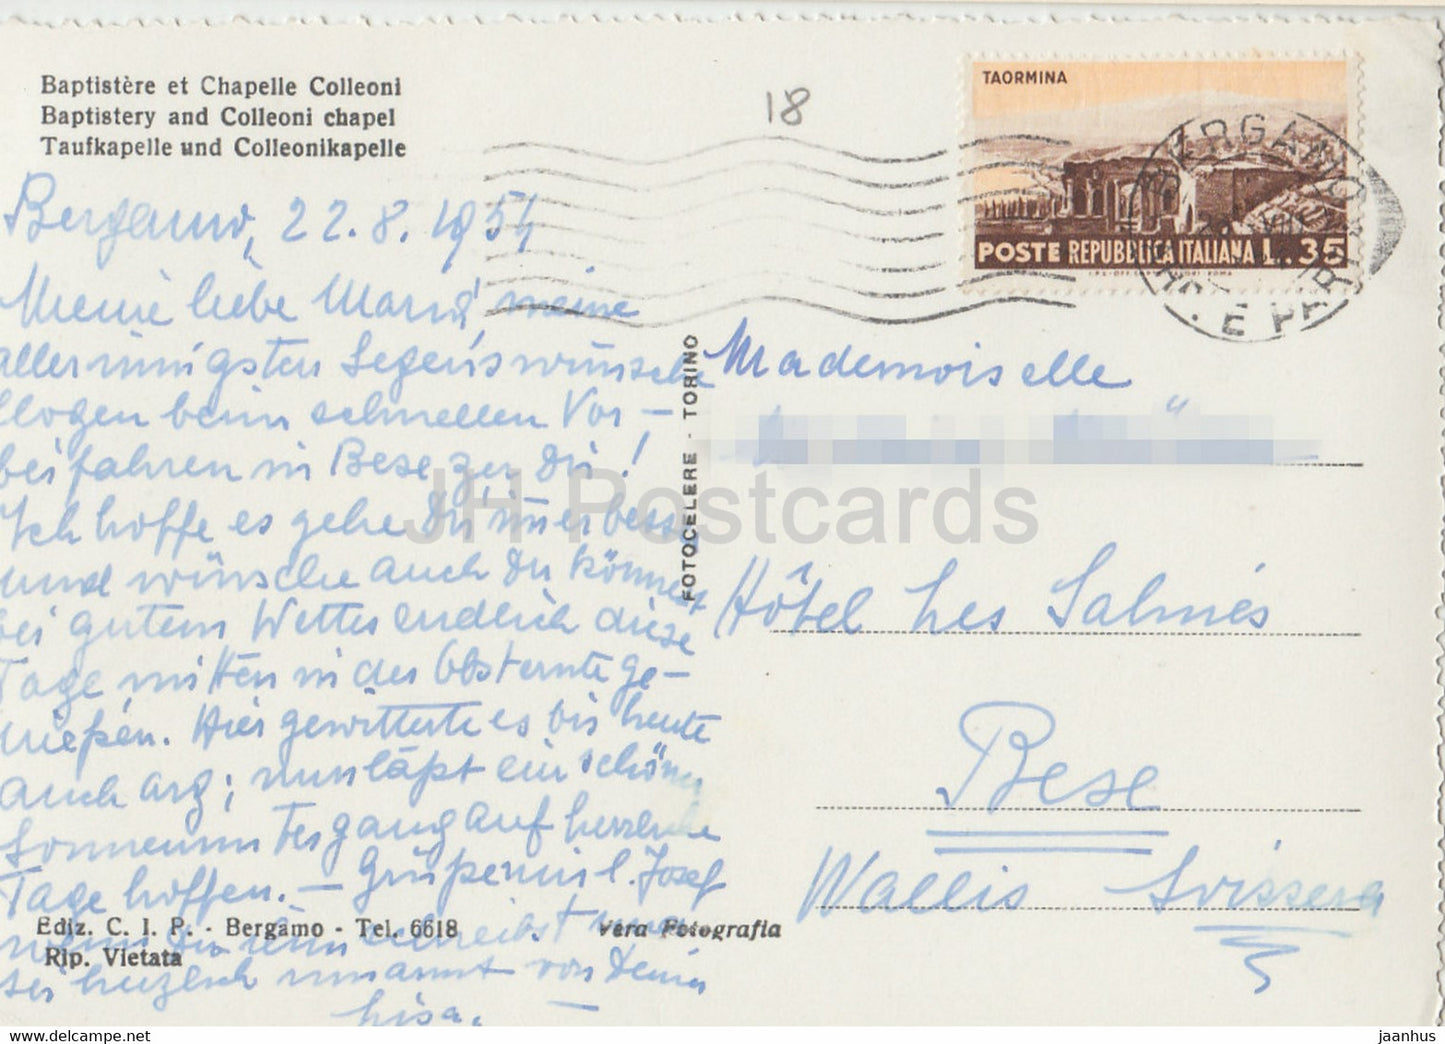 Baptistère et Chapelle Colleoni
Baptistery and Colleoni chapel
Taufkapelle und Colleonikapelle
18
TAORMINA
POSTE REPUBBLICA ITALIANA L. 35
BERGAMO
E PAR
Bergamo, 22.8.1954
Meine liebe Maria, meine
allerinnigsten Segenswünsche
flogen beim schnellen Vor-
beifahren in Bese zu Dir!
Ich hoffe es gehe Dir immer besser
und wünsche auch Du könnest
bei gutem Wetter endlich diese
Tage mitten in der Obsternte ge-
nießen. Hier gewitterte es bis heute
auch arg; nun läßt ein schöner
Sonnenuntergang auf herrliche
Tage hoffen. — Grüße mir l. Josef
wenn Du ihm schreibst und
sei herzlich umarmt von Deiner
Lisa. —
FOTOCELERE - TORINO
Mademoiselle
Hôtel Les
Bese
Wallis Svizzera
Ediz. C. I. P. - Bergamo - Tel. 6618
Vera Fotografia
Rip. Vietata
JH Postcards
hippostcard.com
jhanhus